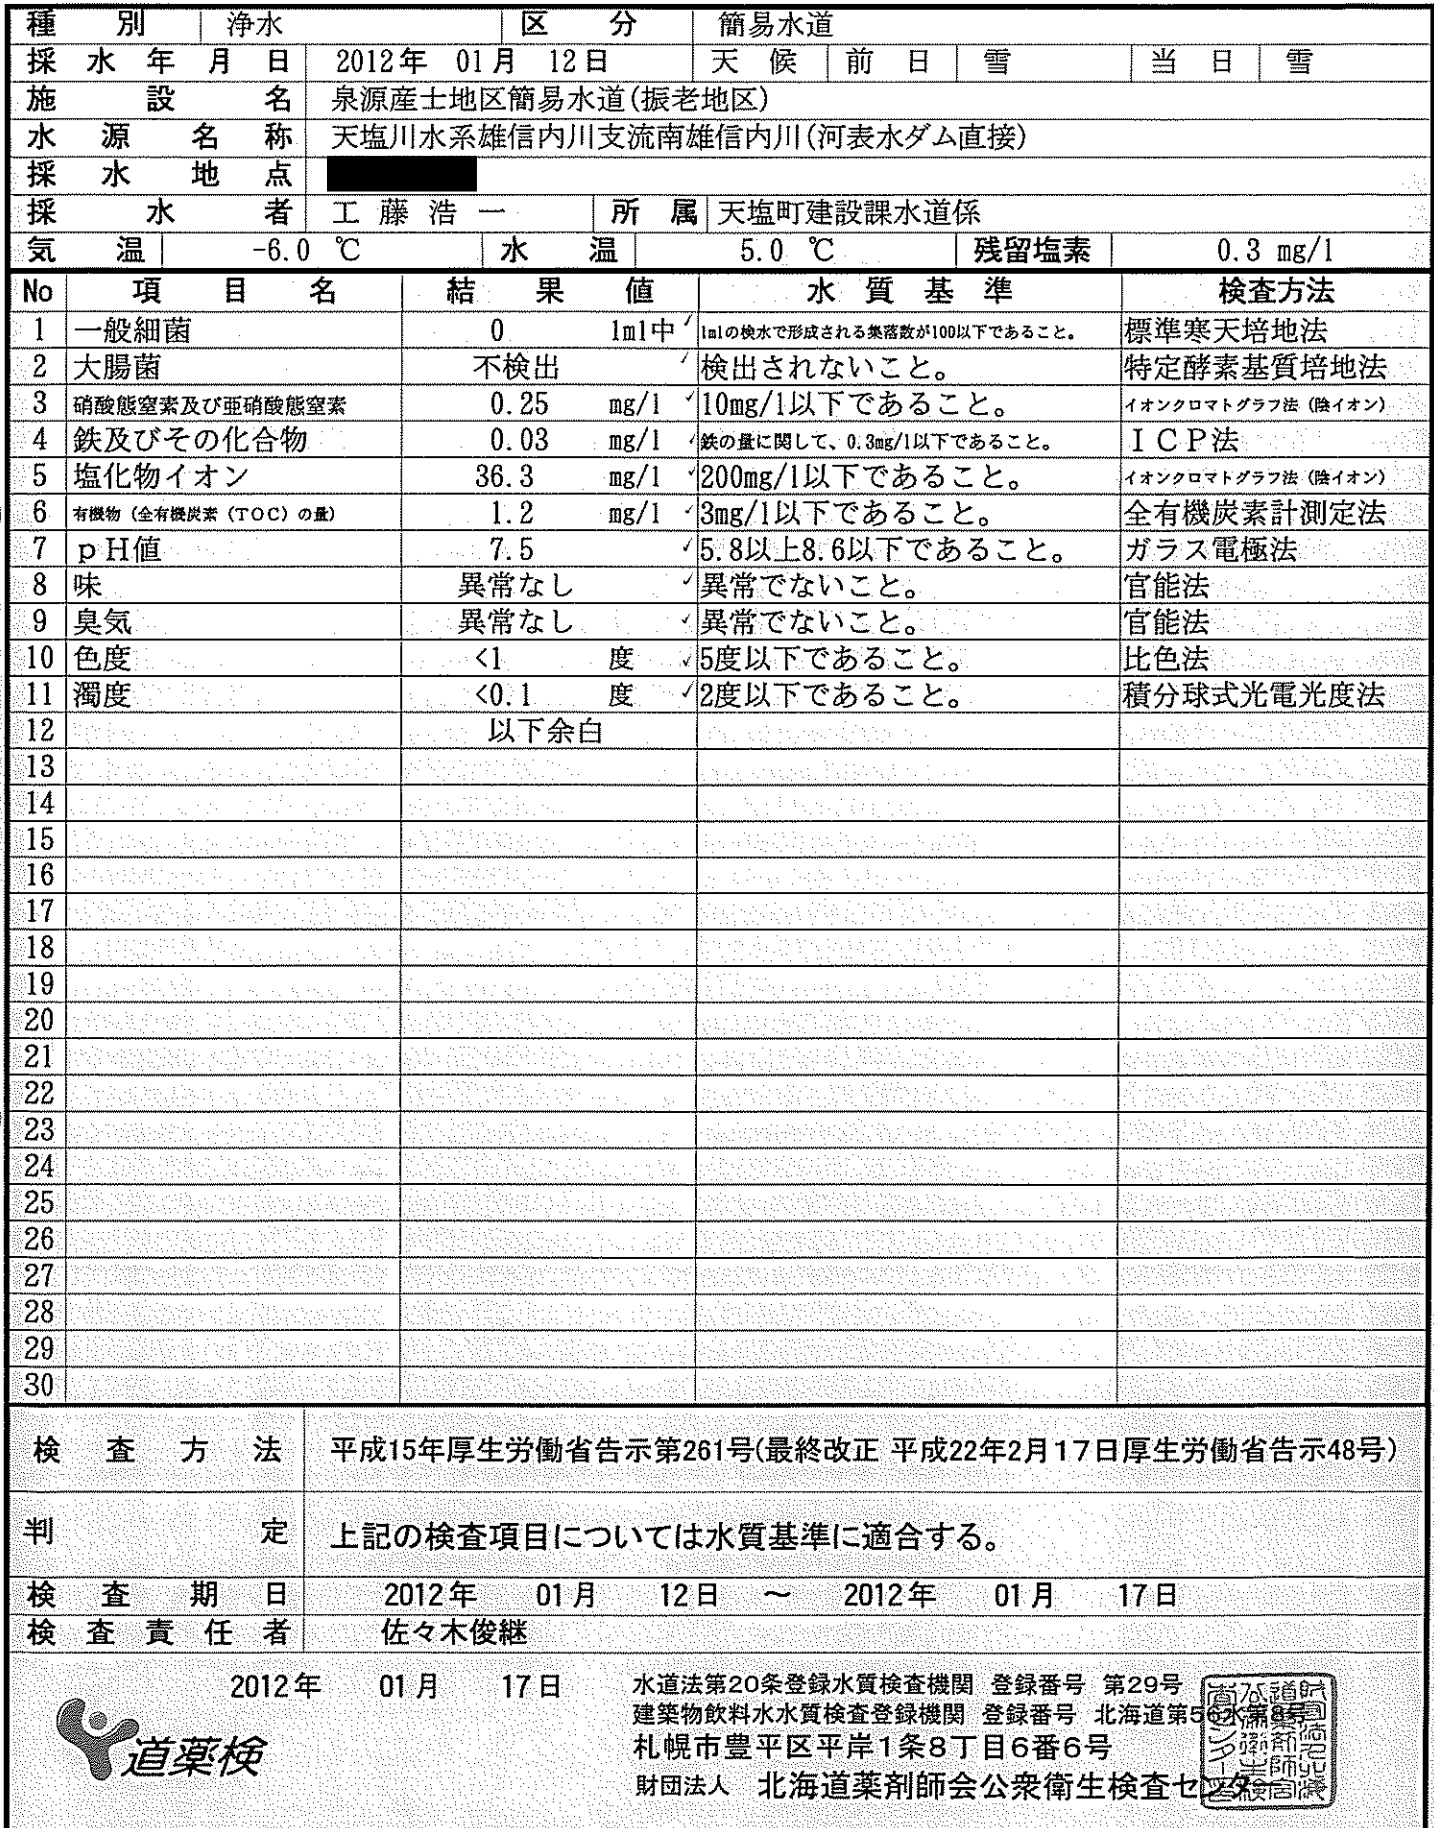 種別 浄水 区分 簡易水道
採水年月日 2012年 01月 12日 天候 前日 雪 当日 雪
施設名 泉源産士地区簡易水道(振老地区)
水源名称 天塩川水系雄信内川支流南雄信内川(河表水ダム直接)
採水地点
採水者 工藤浩一 所属 天塩町建設課水道係
気温 -6.0 ℃ 水温 5.0 ℃ 残留塩素 0.3 mg/l
No 項目名 結果値 水質基準 検査方法
1 一般細菌 0 1ml中 1mlの検水で形成される集落数が100以下であること。 標準寒天培地法
2 大腸菌 不検出 検出されないこと。 特定酵素基質培地法
3 硝酸態窒素及び亜硝酸態窒素 0.25 mg/l 10mg/l以下であること。 イオンクロマトグラフ法(陰イオン)
4 鉄及びその化合物 0.03 mg/l 鉄の量に関して、0.3mg/l以下であること。 ICP法
5 塩化物イオン 36.3 mg/l 200mg/l以下であること。 イオンクロマトグラフ法(陰イオン)
6 有機物(全有機炭素(TOC)の量) 1.2 mg/l 3mg/l以下であること。 全有機炭素計測定法
7 pH値 7.5 5.8以上8.6以下であること。 ガラス電極法
8 味 異常なし 異常でないこと。 官能法
9 臭気 異常なし 異常でないこと。 官能法
10 色度 <1 度 5度以下であること。 比色法
11 濁度 <0.1 度 2度以下であること。 積分球式光電光度法
12 以下余白
13
14
15
16
17
18
19
20
21
22
23
24
25
26
27
28
29
30
検査方法 平成15年厚生労働省告示第261号(最終改正 平成22年2月17日厚生労働省告示48号)
判定 上記の検査項目については水質基準に適合する。
検査期日 2012年 01月 12日 ~ 2012年 01月 17日
検査責任者 佐々木俊継
2012年 01月 17日
水道法第20条登録水質検査機関 登録番号 第29号
建築物飲料水水質検査登録機関 登録番号 北海道第56水第8号
札幌市豊平区平岸1条8丁目6番6号
財団法人 北海道薬剤師会公衆衛生検査センター
道薬検